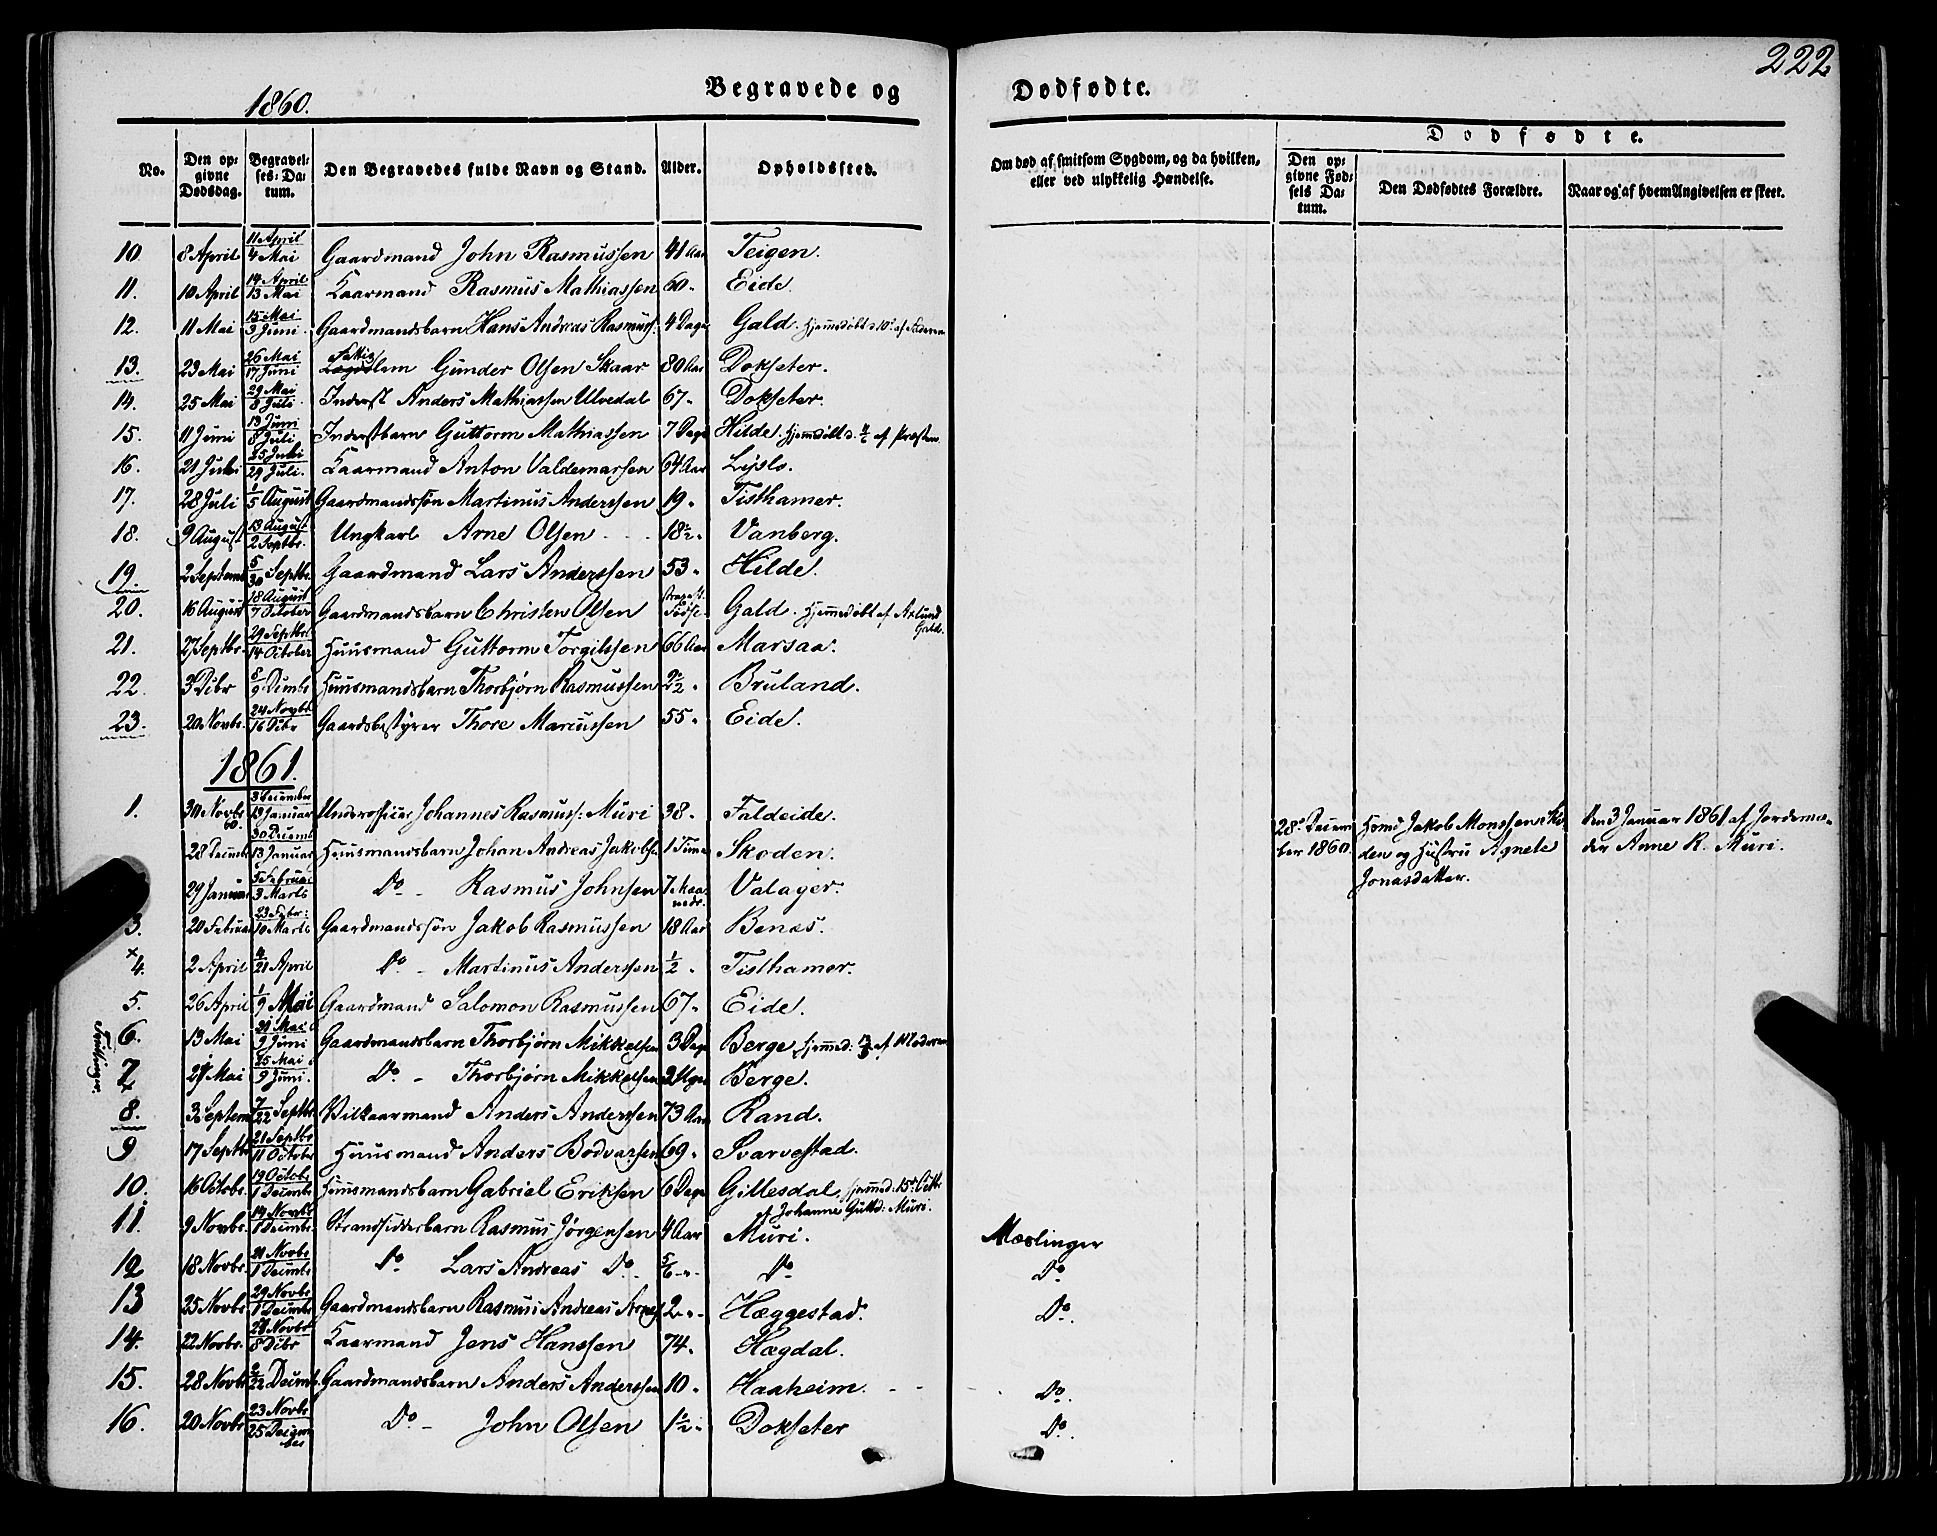 222
1860.
Begravede og Dødfødte.
No.
Den opgivne Dødsdag.
Begravelses-Datum.
Den Begravedes fulde Navn og Stand.
Alder.
Opholdssted.
Om død af smitsom Sygdom, og da hvilken, eller ved ulykkelig Hændelse.
Dødfødte.
Den opgivne Fødsels Datum.
Den Dødfødtes Forældre.
Naar og af hvem Angivelsen er skeet.
10. 8 April 11 April 4 Mai Gaardmand John Rasmussen 41 Aar Teigen.
11. 10 April 14 April 13 Mai Kaarmand Rasmus Mathiassen 60 " Eide.
12. 11 Mai 15 Mai 3 Juni Gaardmandsbarn Hans Andreas Rasmuss: 4 Dage Gald. Hjemmedøbt af Faderen
13. 23 Mai 26 Mai 17 Juni Fattiglem Gunder Olsen Skaar 80 Aar Dokseter.
14. 25 Mai 29 Mai 8 Juli Inderst Anders Mathiassen Ulvedal 67 " Dokseter.
15. 11 Juni 13 Juni 8 Juli Inderstbarn Guttorm Mathiassen 7 Dage Hilde. Hjemdøbt d. af Præsten
16. 21 25 29 Juli. Kaarmand Anton Valdemarsen 64 Aar Lyslo.
17. 28 Juli 1/5 August Gaardmandssøn Martinus Anderssen 19 " Tisthamer.
18. 9 August 13 August 2 Septbr. Ungkarl Arne Olsen 18½ " Vanberg.
19. 2 Septemb 5/30 Septbr. Gaardmand Lars Anderssen 53 " Hilde.
20. 16 August 18 August 7 October Gaardmandsbarn Christen Olsen strax eft. Fødse Gald. Hjemmedøbt af Axlund Gald.
21. 27 Septbr. 29 Septbr 14 October Huusmand Guttorm Torgilssen 66 Aar Marsaa.
22. 3 Dcbr 8/9 Decmbr Huusmandsbarn Thorbjørn Rasmussen 2½ " Bruland.
23. 20 Novbr. 24 Novbr 16 Dcbr Gaardsbestyrer Thore Marcussen 55 " Eide.
1861.
1. 30 Novbr 60. 3 December 13 Januar Underofficeer Johannes Rasmuss: Muri 38 " Faldeide.
28 Decmbr 30 Decmb 13 Januar Huusmandsbarn Johan Andreas Jakobs. 1 Time Skoden.
28 December 1860. Huusmd Jakob Monssen Skoden og Hustru Agnete Jonasdatter.
Den 3 Januar 1861 af Jordemoder Anne R. Muri.
29 Januar 5 Februar 3 Marts Do - Rasmus Johnsen 7 Maaneder. Valager.
3. 20 Februar 23 Febr: 10 Marts Gaardmandssøn Jakob Rasmussen 18 Aar Benæs.
4. 2 April 4/21 April Do - Martinus Anderssen ½ " Tisthamer.
5. 26 April 1/9 Mai Gaardmand Salomon Rasmussen 67 " Eide.
6. 13 Mai 21 Mai 9 Juni Gaardmandsbarn Thorbjørn Mikkelsen 3 Dage Berge Hjemmed: af Moderen
Tvillinger.
7 21 Mai 25 Mai 9 Juni. Do. - Thorbjørn Mikkelsen 2 Uger Berge.
8. 3 Septemb 7/22 Septbr. Vilkaarmand Anders Anderssen 73 Aar Rand.
9 17 Septbr 21 Septbr 11 October Huusmand Anders Bodvarsen 69 " Svarvestad.
10. 16 Octobr. 19 Octobr 1 Decmbr Huusmandsbarn Gabriel Eriksen 6 Dage Gillesdal, Hjemmed: 15de Octbr af Johanne Guttd: Muri.
11. 9 Novbr. 14 Novbr 1 Decmbr. Strandsidderbarn Rasmus Jørgensen 4 Aar Muri. Mæslinger
12 18 Novbr. 21 Novbr 1 Decmbr Do Lars Andreas Do. 5/6 " Do Do.
13 25 Novbr 29 Novbr 1 Decmbr Gaardmandsbarn Rasmus Andreas Arnes 2 " Hæggestad. Do.
14. 22 Novbr. 28 Novbr 8 Dcbr Kaarmand Jens Hanssen 74 " Hægdal.
15. 28 Novbr 2/22 Decmb. Gaardmandsbarn Anders Anderssen 10 " Haaheim. Do.
16. 20 Novbr 23 Novbr 25 December Do - John Olsen 1½ " Dokseter Do.